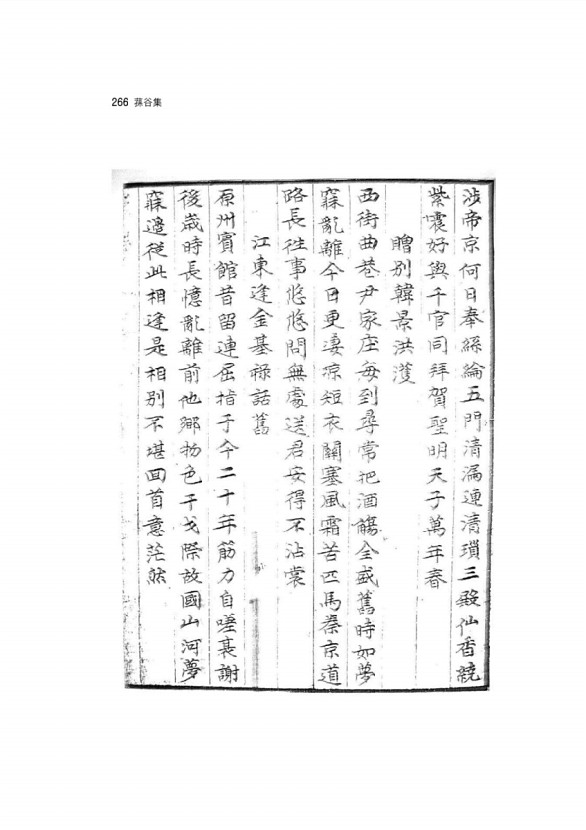 266 蓀谷集
涉帝京何日奉絲綸五門清漏連清瑣三殿仙香繞
紫霞好與千官同拜賀聖明天子萬年春
贈別韓景洪濩
西街曲巷尹家庄每到尋常把酒觴全盛舊時如夢
寐亂離今日更凄凉短衣關塞風霜苦匹馬秦京道
路長往事悠悠問無處送君安得不沾裳
江東逢金基祿話舊
原州賓館昔留連屈指于今二十年筋力自嗟衰謝
後歲時長憶亂離前他鄉物色干戈際故國山河夢
寐邊從此相逢是相別不堪回首意茫然